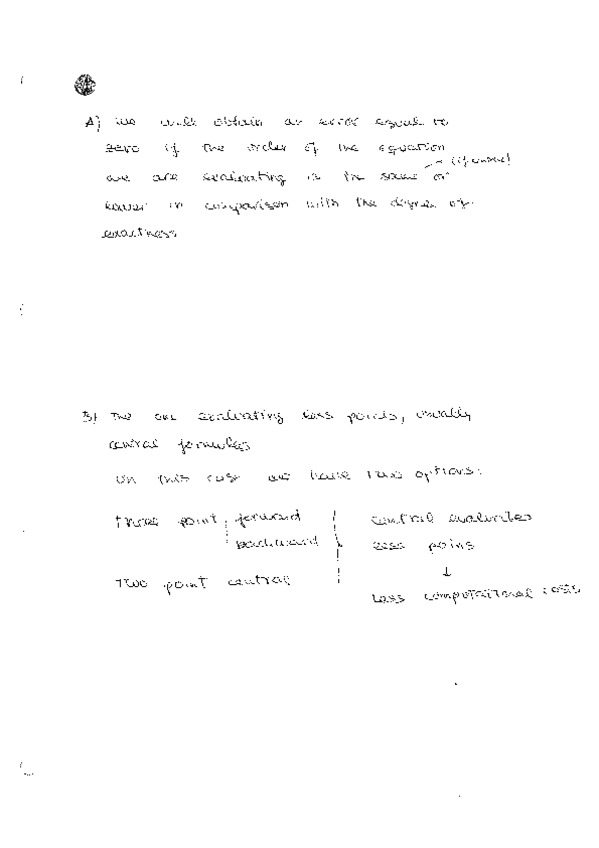 A) We will obtain an error equal to
zero if the order of the equation
we are evaluating is the same or
lower in comparison with the degree of
exactness
B) The one evaluating less points, usually
central formulas
In this case we have two options:
three point forward
backward
Two point central
central evaluates
less points
↓
Less computational costs